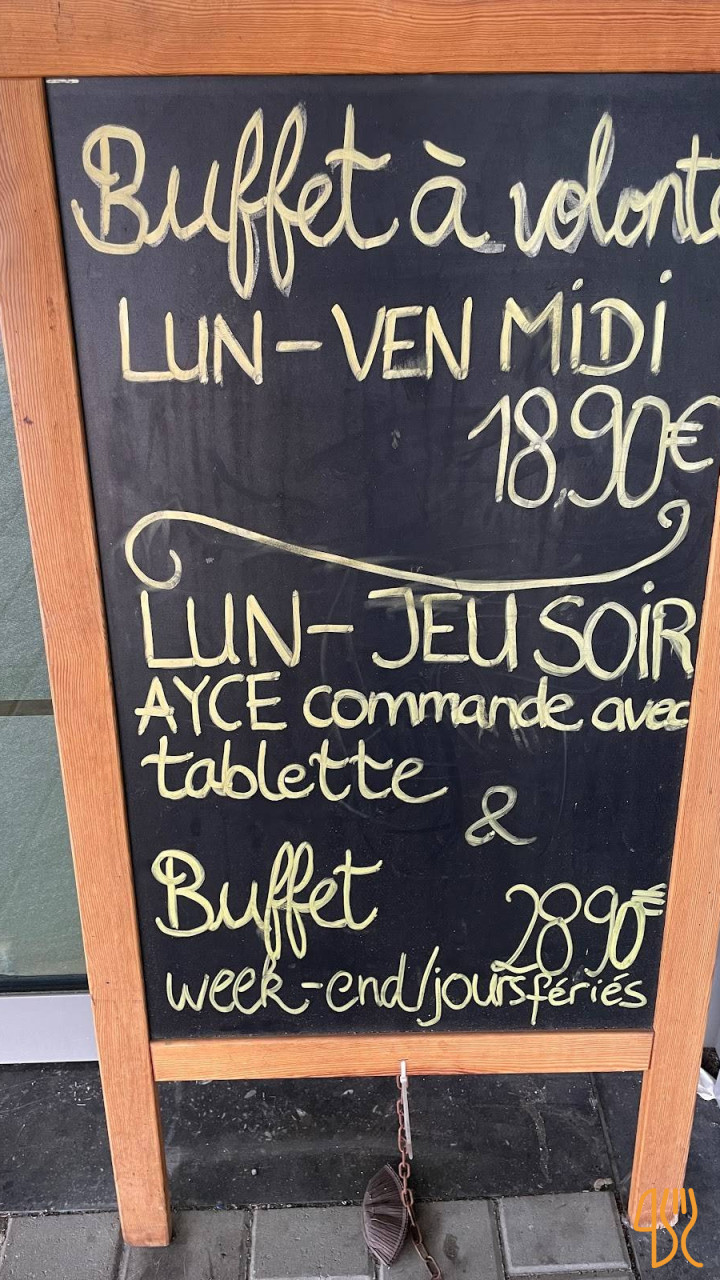 Buffet à volonté
LUN - VEN MIDI
18,90€
LUN - JEU SOIR
AYCE commande avec
tablette
&
Buffet 28,90€
week-end/jours fériés